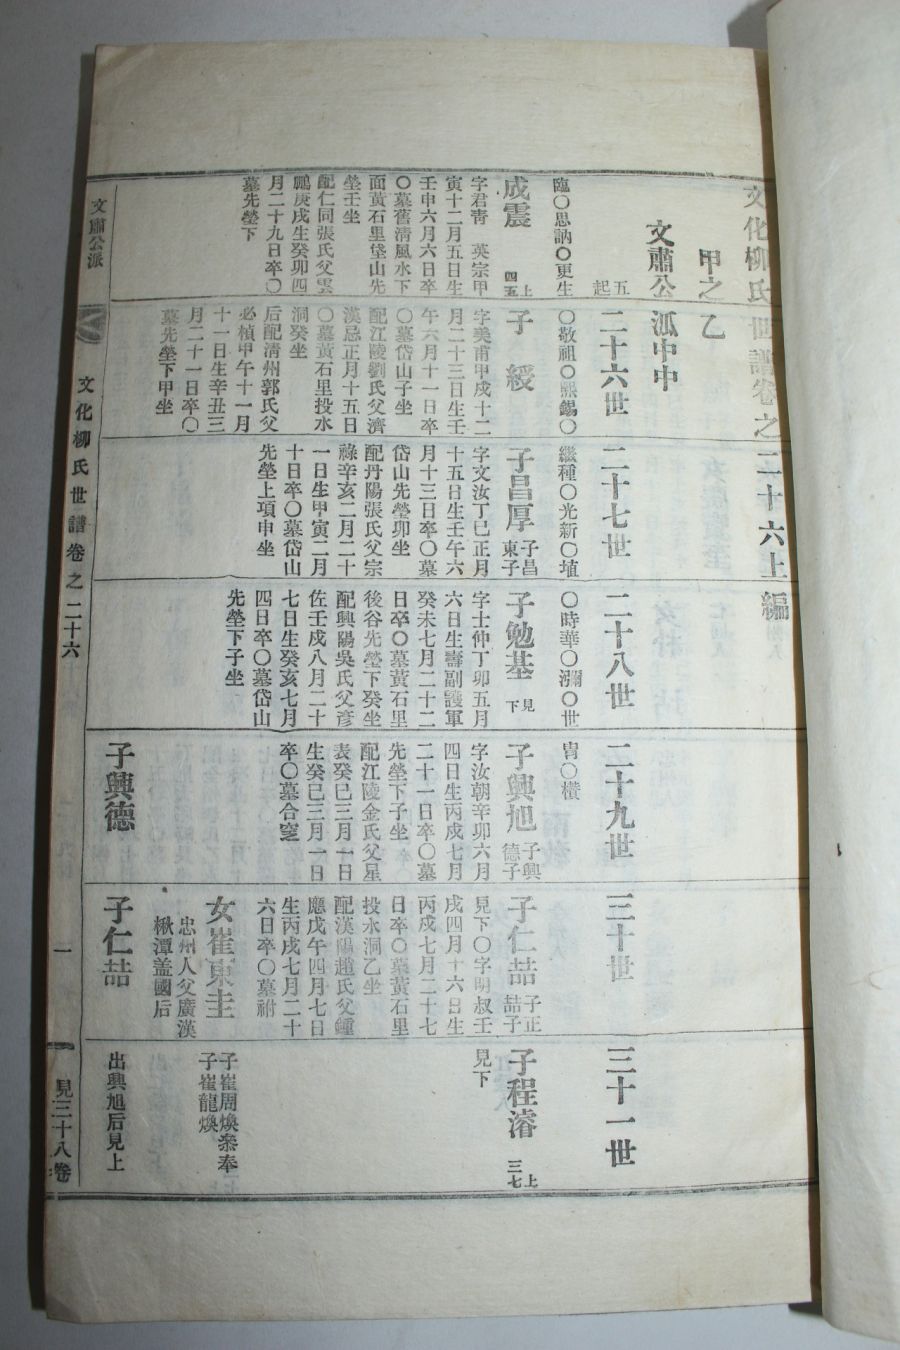 文化柳氏世譜卷之二十六上編
甲之乙
文肅公派中中
五
起
二十六世
二十七世
二十八世
二十九世
三十世
三十一世
臨〇思訥〇更生
〇敬祖〇熙錫〇
繼種〇光新〇埴
〇時華〇瀰〇世
胄〇櫕
成震
上
四五
字君靑 英宗甲
寅十二月五日生
壬申六月六日卒
〇墓舊淸風水下
面黃石里垈山先
塋壬坐
配仁同張氏父雲
鵬庚戌生癸卯四
月二十九日卒〇
墓先塋下
子 綏
字美甫甲戌十二
月二十三日生壬
午六月十一日卒
〇墓岱山子坐
配江陵劉氏父濟
漢忌正月十五日
〇墓黃石里投水
洞癸坐
后配淸州郭氏父
必楨甲午十一月
十一日生辛丑三
月二十一日卒〇
墓先塋下甲坐
子昌厚
子昌
東子
字文汝丁巳正月
十五日生壬午六
月十三日卒〇墓
岱山先塋卯坐
配丹陽張氏父宗
祿辛亥二月二十
一日生甲寅二月
十日卒〇墓岱山
先塋上項申坐
子勉基
見
下
字士仲丁卯五月
六日生壽副護軍
癸未七月二十二
日卒〇墓黃石里
後谷先塋下癸坐
配興陽吳氏父彦
佐壬戌八月二十
七日生癸亥七月
四日卒〇墓岱山
先塋下子坐
子興旭
子興
德子
字汝朝辛卯六月
四日生丙戌七月
二十一日卒〇墓
先塋下子坐
配江陵金氏父星
表癸巳三月一日
生癸巳三月一日
卒〇墓合窆
子仁喆
子正
喆子
見下〇字明叔壬
戌四月十六日生
丙戌七月二十七
日卒〇墓黃石里
投水洞乙坐
配漢陽趙氏父鍾
應戊午四月七日
生丙戌七月二十
六日卒〇墓祔
子程濬
上
三七
見下
女崔東圭
忠州人父廣漢
楸潭盖國后
子崔周煥叅奉
子崔龍煥
子興德
子仁喆
出興旭后見上
文肅公派
文化柳氏世譜卷之二十六
一
見三十八卷